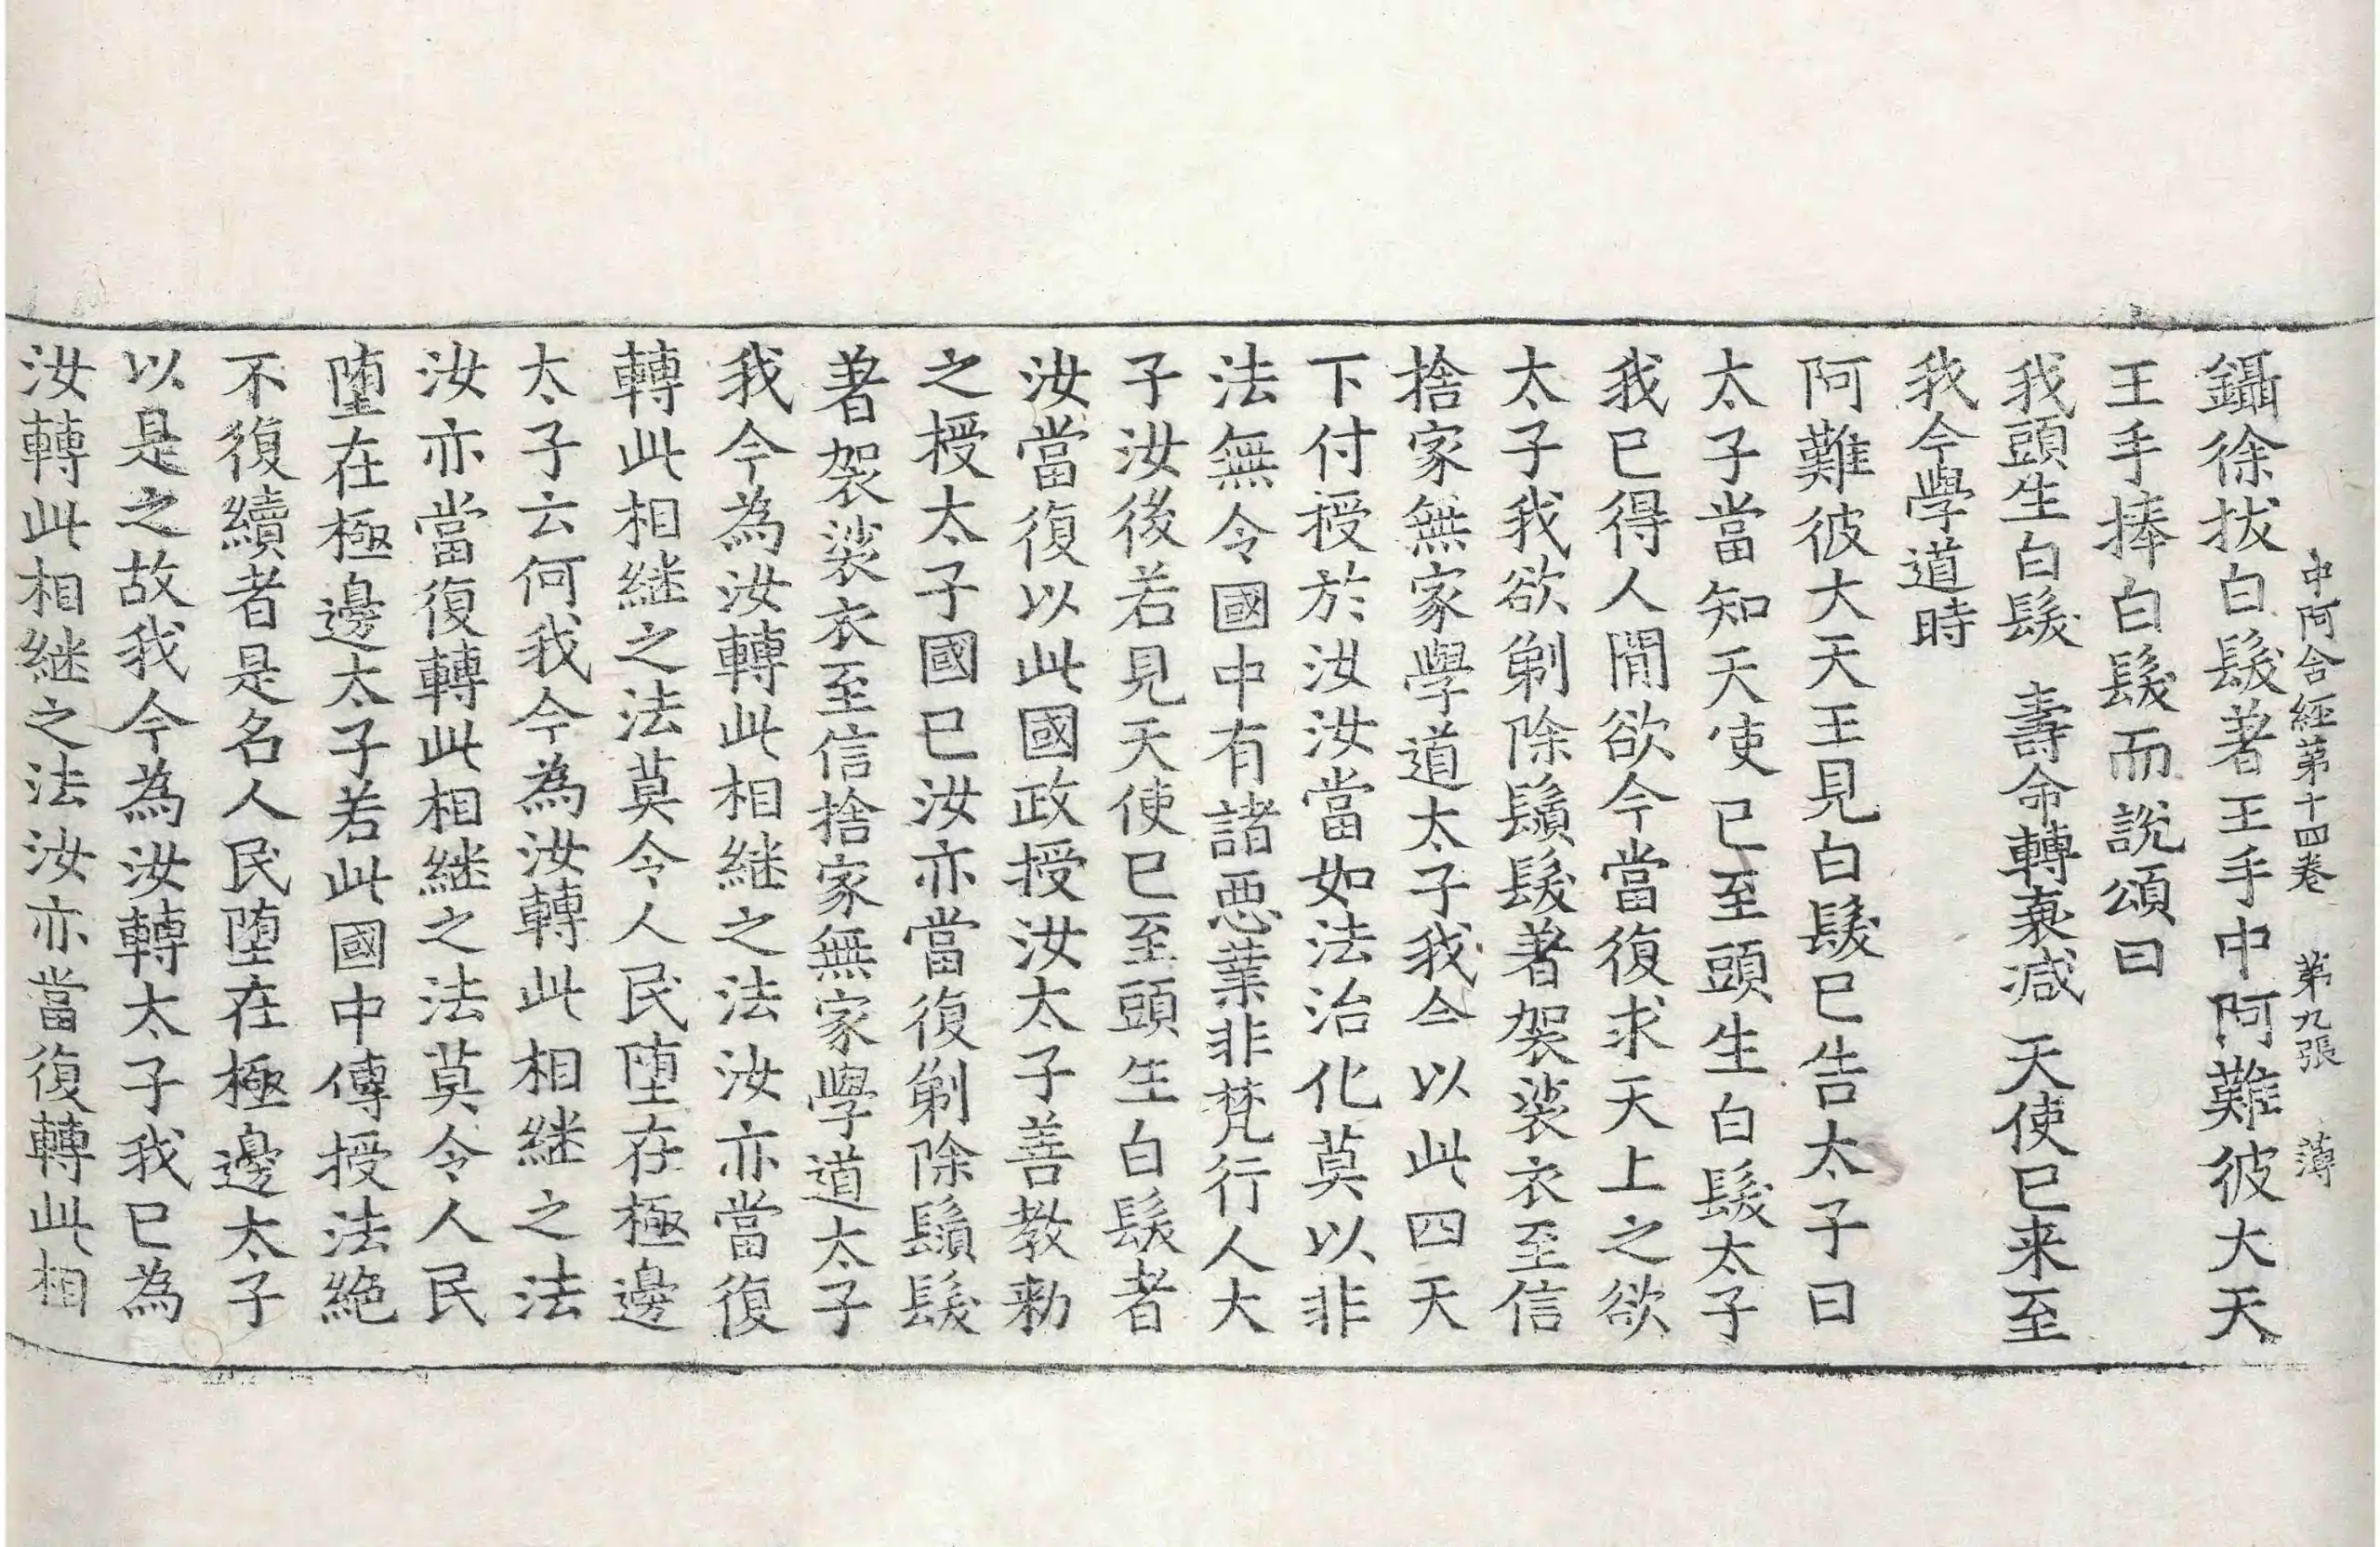 中阿含經第十四卷　第九張　薄
鑷徐拔白髮著王手中阿難彼大天
王手捧白髮而說頌曰
我頭生白髮　壽命轉衰減　天使已来至
我今學道時
阿難彼大天王見白髮已告太子曰
太子當知天使已至頭生白髮太子
我已得人間欲今當復求天上之欲
太子我欲剃除鬚髮著袈裟衣至信
捨家無家學道太子我今以此四天
下付授於汝汝當如法治化莫以非
法無令國中有諸惡業非梵行人太
子汝後若見天使已至頭生白髮者
汝當復以此國政授汝太子善教勑
之授太子國已汝亦當復剃除鬚髮
著袈裟衣至信捨家無家學道太子
我今為汝轉此相継之法汝亦當復
轉此相継之法莫令人民墮在極邊
太子云何我今為汝轉此相継之法
汝亦當復轉此相継之法莫令人民
墮在極邊太子若此國中傳授法絶
不復續者是名人民墮在極邊太子
以是之故我今為汝轉太子我已為
汝轉此相継之法汝亦當復轉此相